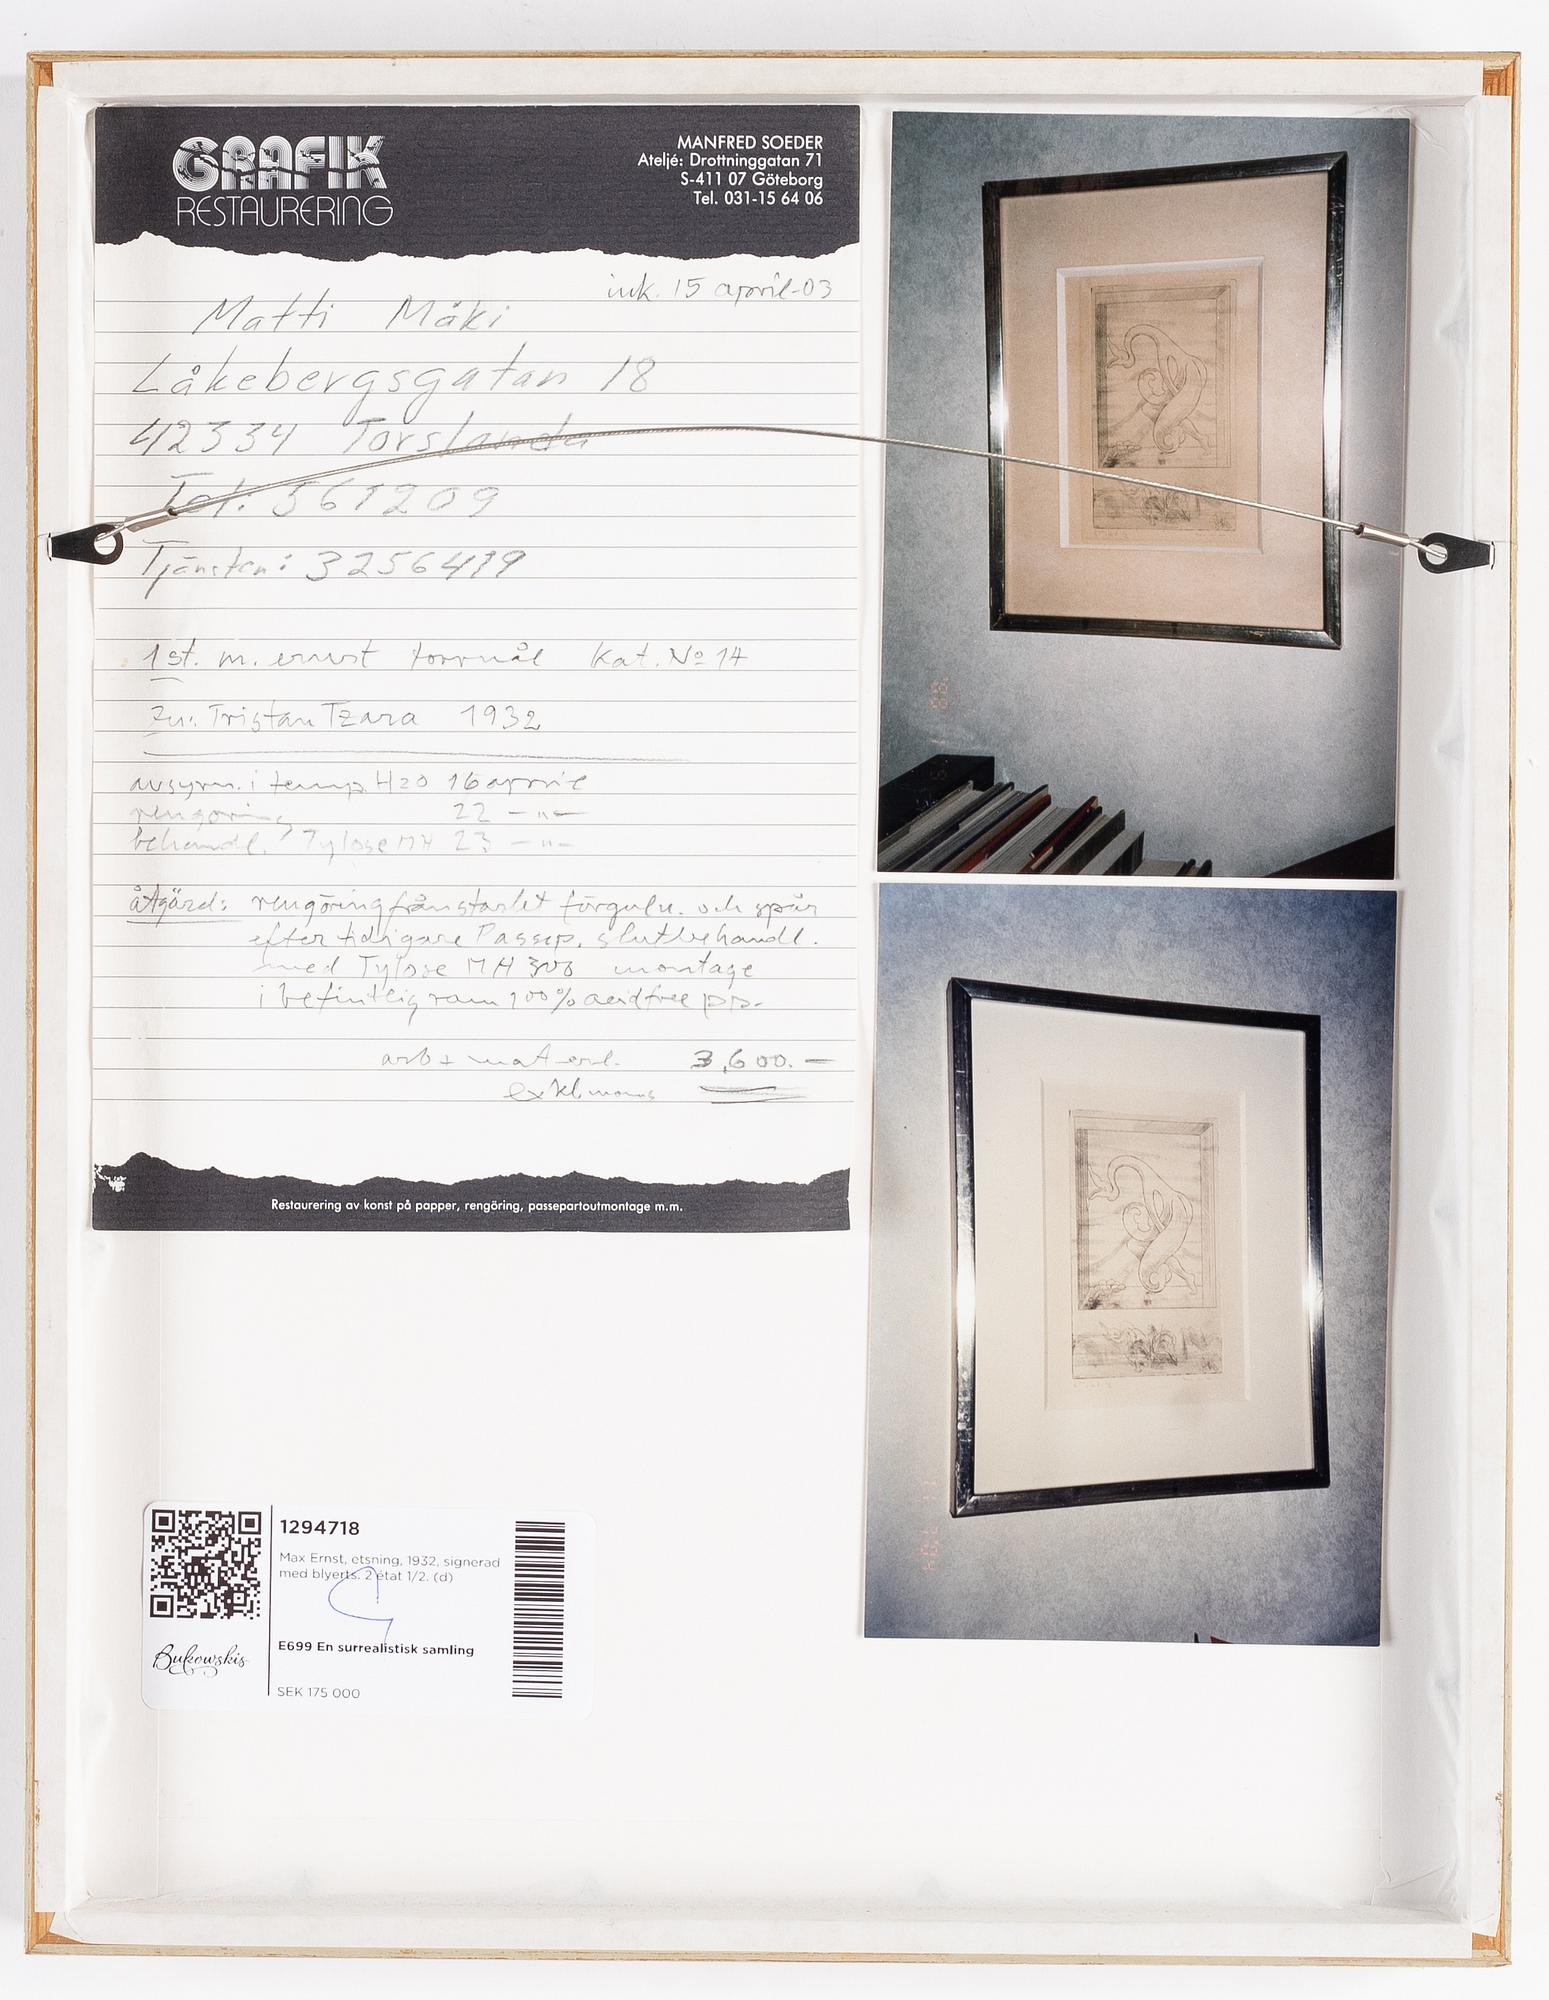 GRAFIK
RESTAURERING
MANFRED SOEDER
Ateljé: Drottninggatan 71
S-411 07 Göteborg
Tel. 031-15 64 06
ink. 15 april-03
Matti Mäki
Låkebergsgatan 18
42334 Torslanda
Tel: 561209
Tjänsten: 3256419
1 st. m. ernst torrnål Kat. No 14
Zu: Tristan Tzara 1932
avsyrn. i temp. H2O 16 april
rengöring 22 -"-
behandl. Tylose MH 23 -"-
åtgärd: rengöring från starkt förguln. och spår
efter tidigare Passep. slutbehandl.
med Tylose MH 300 montage
i befintlig ram 100% acidfree pp.
arb + mat 3,600.-
exkl moms
Restaurering av konst på papper, rengöring, passepartoutmontage m.m.
1294718
Max Ernst, etsning, 1932, signerad
med blyerts. 2 état 1/2. (d)
E699 En surrealistisk samling
Bukowskis
SEK 175 000